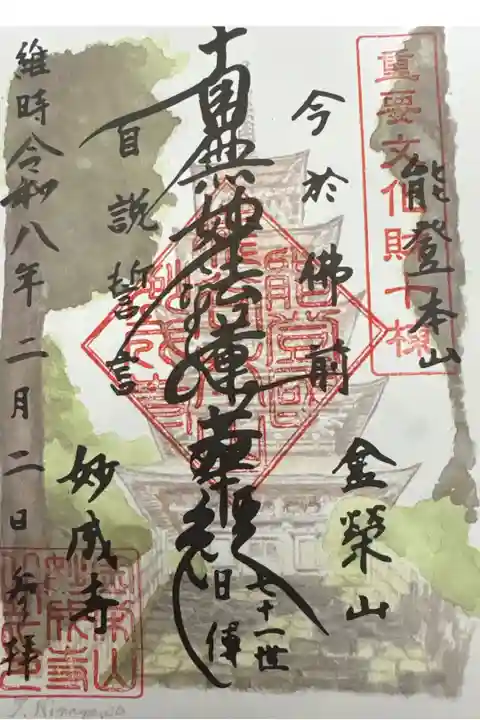 重要文化財十棟
能登本山
金榮山
今於佛前
南無妙法蓮華経
七十一世
日倖
自説誓言
妙成寺
維時令和八年二月二日参拝